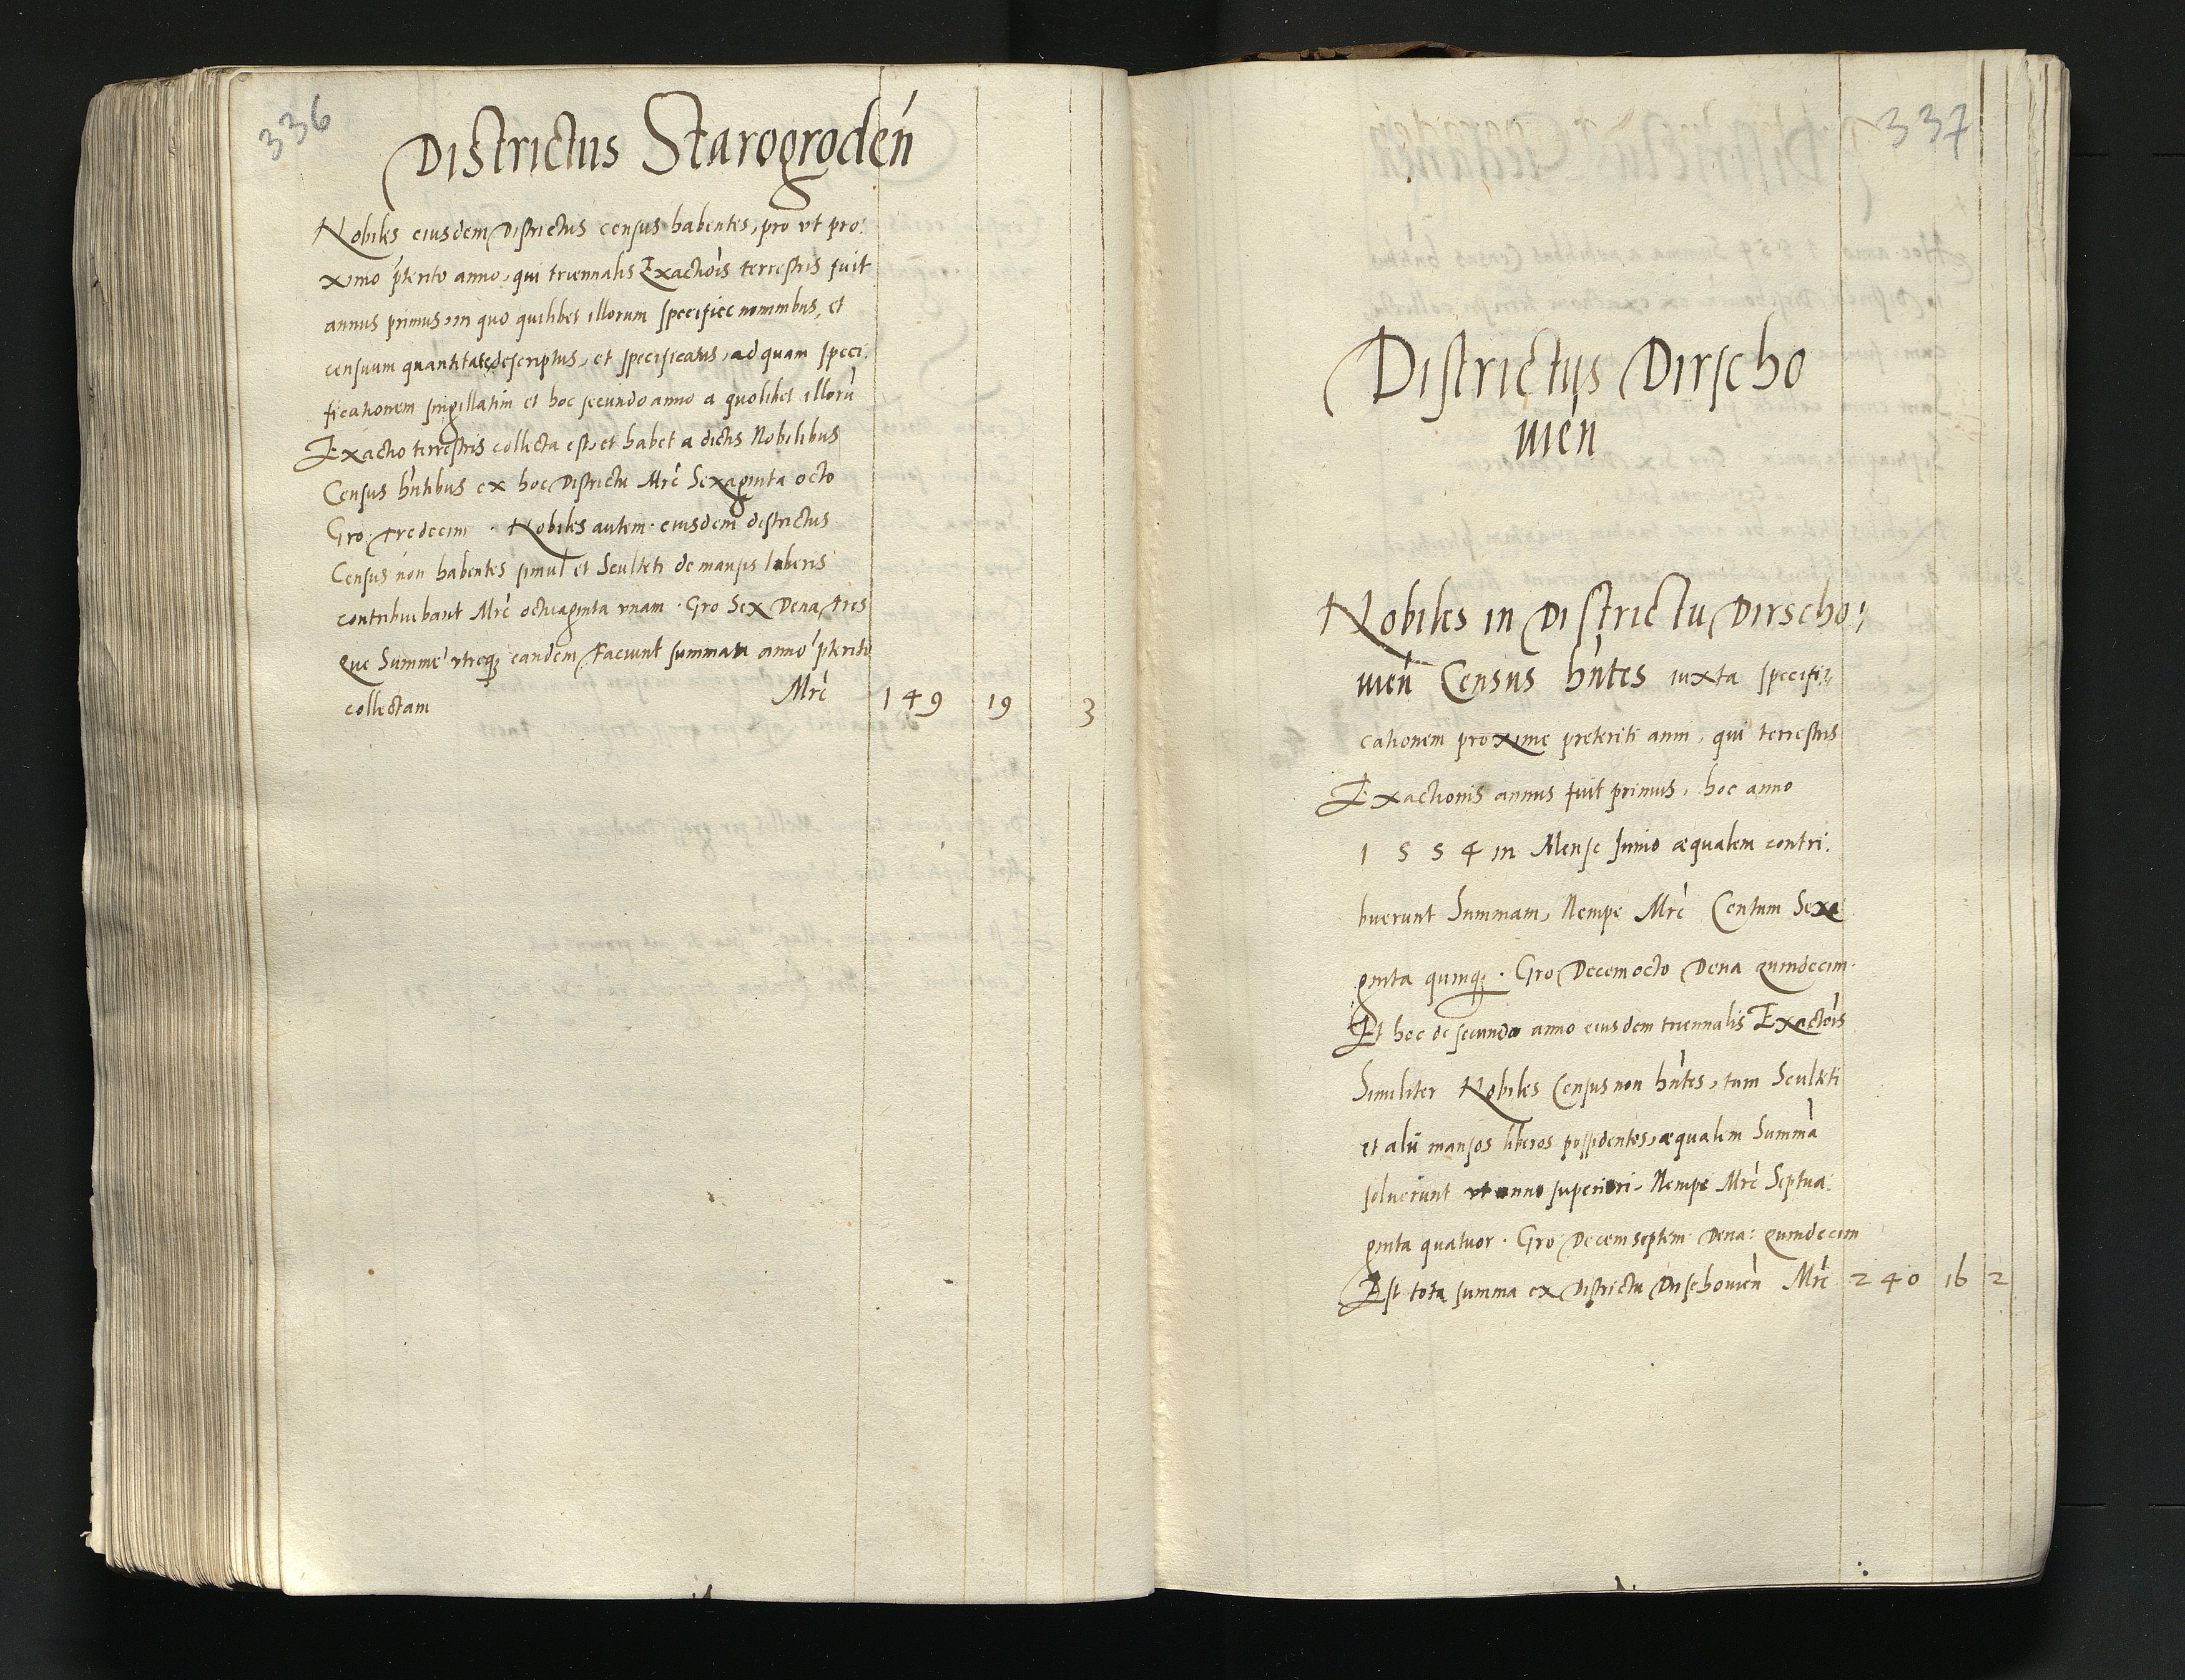 336
Districtus Starogroden
Nobiles eiusdem Districtus census habentes, pro vt pro:
ximo pterito anno, qui triennalis Exactiois terrestris fuit
annus primus, in quo quilibet illorum specifice nominibus, et
censuum quantitate descriptus, et specificatus, ad quam speci:
ficationem singillatim et hoc secundo anno a quolibet illoru
Exactio terrestris collecta est, et habet a dictis Nobilibus
Census hntibus ex hoc Districtu Mrc Sexaginta octo
Gro. Tredecim . Nobiles autem eiusdem districtus
Census non habentes simul et Sculteti de mansis liberis
contribuebant Mrc octuaginta vnam . Gro Sex Dena. tres
Que Summe vtreqz eandem Faciunt summam anno pterito
collectam Mrc 149 19 3
337
Districtus Dirscho
uien
Nobiles in Districtu Dirscho:
uien Census hntes iuxta specifi:
cationem proxime preteriti anni, qui terrestris
Exactionis annus fuit primus, hoc anno
1 5 5 4 in Mense Junio æqualem contri:
buerunt Summam, Nempe Mrc Centum Sexa
ginta quinqz . Gro Decem octo Dena quindecim.
Et hoc de secundo anno eiusdem triennalis Exactois
Similiter Nobiles Census non hntes, tum Sculteti
et alii mansos liberos possidentes, æqualem Summa
soluerunt vt anno superiori. Nempe Mrc Septua:
ginta quatuor . Gro Decem septem Dena: quindecim
Est tota summa ex Districtu Dirschouien Mrc 240 16 2